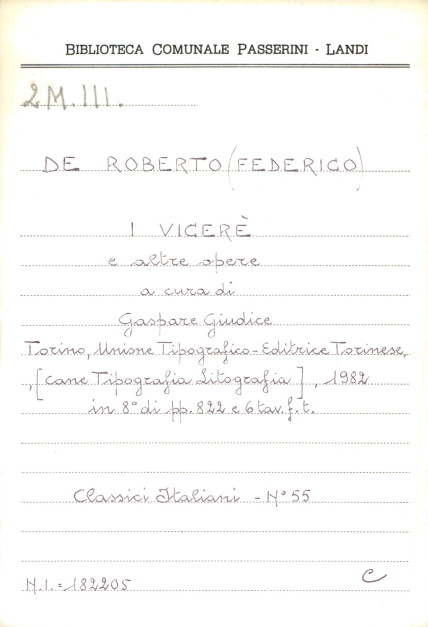 BIBLIOTECA COMUNALE PASSERINI - LANDI
2M.III.
DE ROBERTO (FEDERICO)
I VICERÈ
e altre opere
a cura di
Gaspare Giudice
Torino, Unione Tipografico-Editrice Torinese,
, [cane Tipografia Litografia], 1982
in 8° di pp. 822 e 6 tav. f. t.
Classici Italiani - N° 55
N.I.= 182205
C